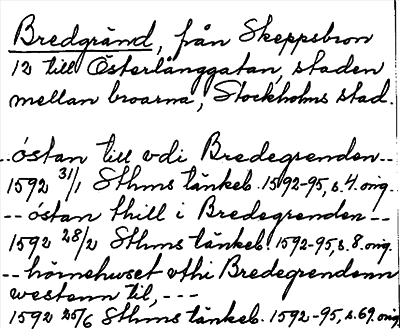 Bredgränd, från Skeppsbron
12 till Österlånggatan, staden
mellan broarna, Stockholms stad.
--östan till vdi Bredegrenden--
1592 31/1 Sthms tänkeb. 1592-95, s. 4. orig.
-- östan thill i Bredegrenden --
1592 28/2 Sthms tänkeb. 1592-95, s. 8. orig.
-- hörnehuset vthi Bredegrendenn
westenn til, ---
1592 25/6 Sthms tänkeb. 1592-95, s. 69. orig